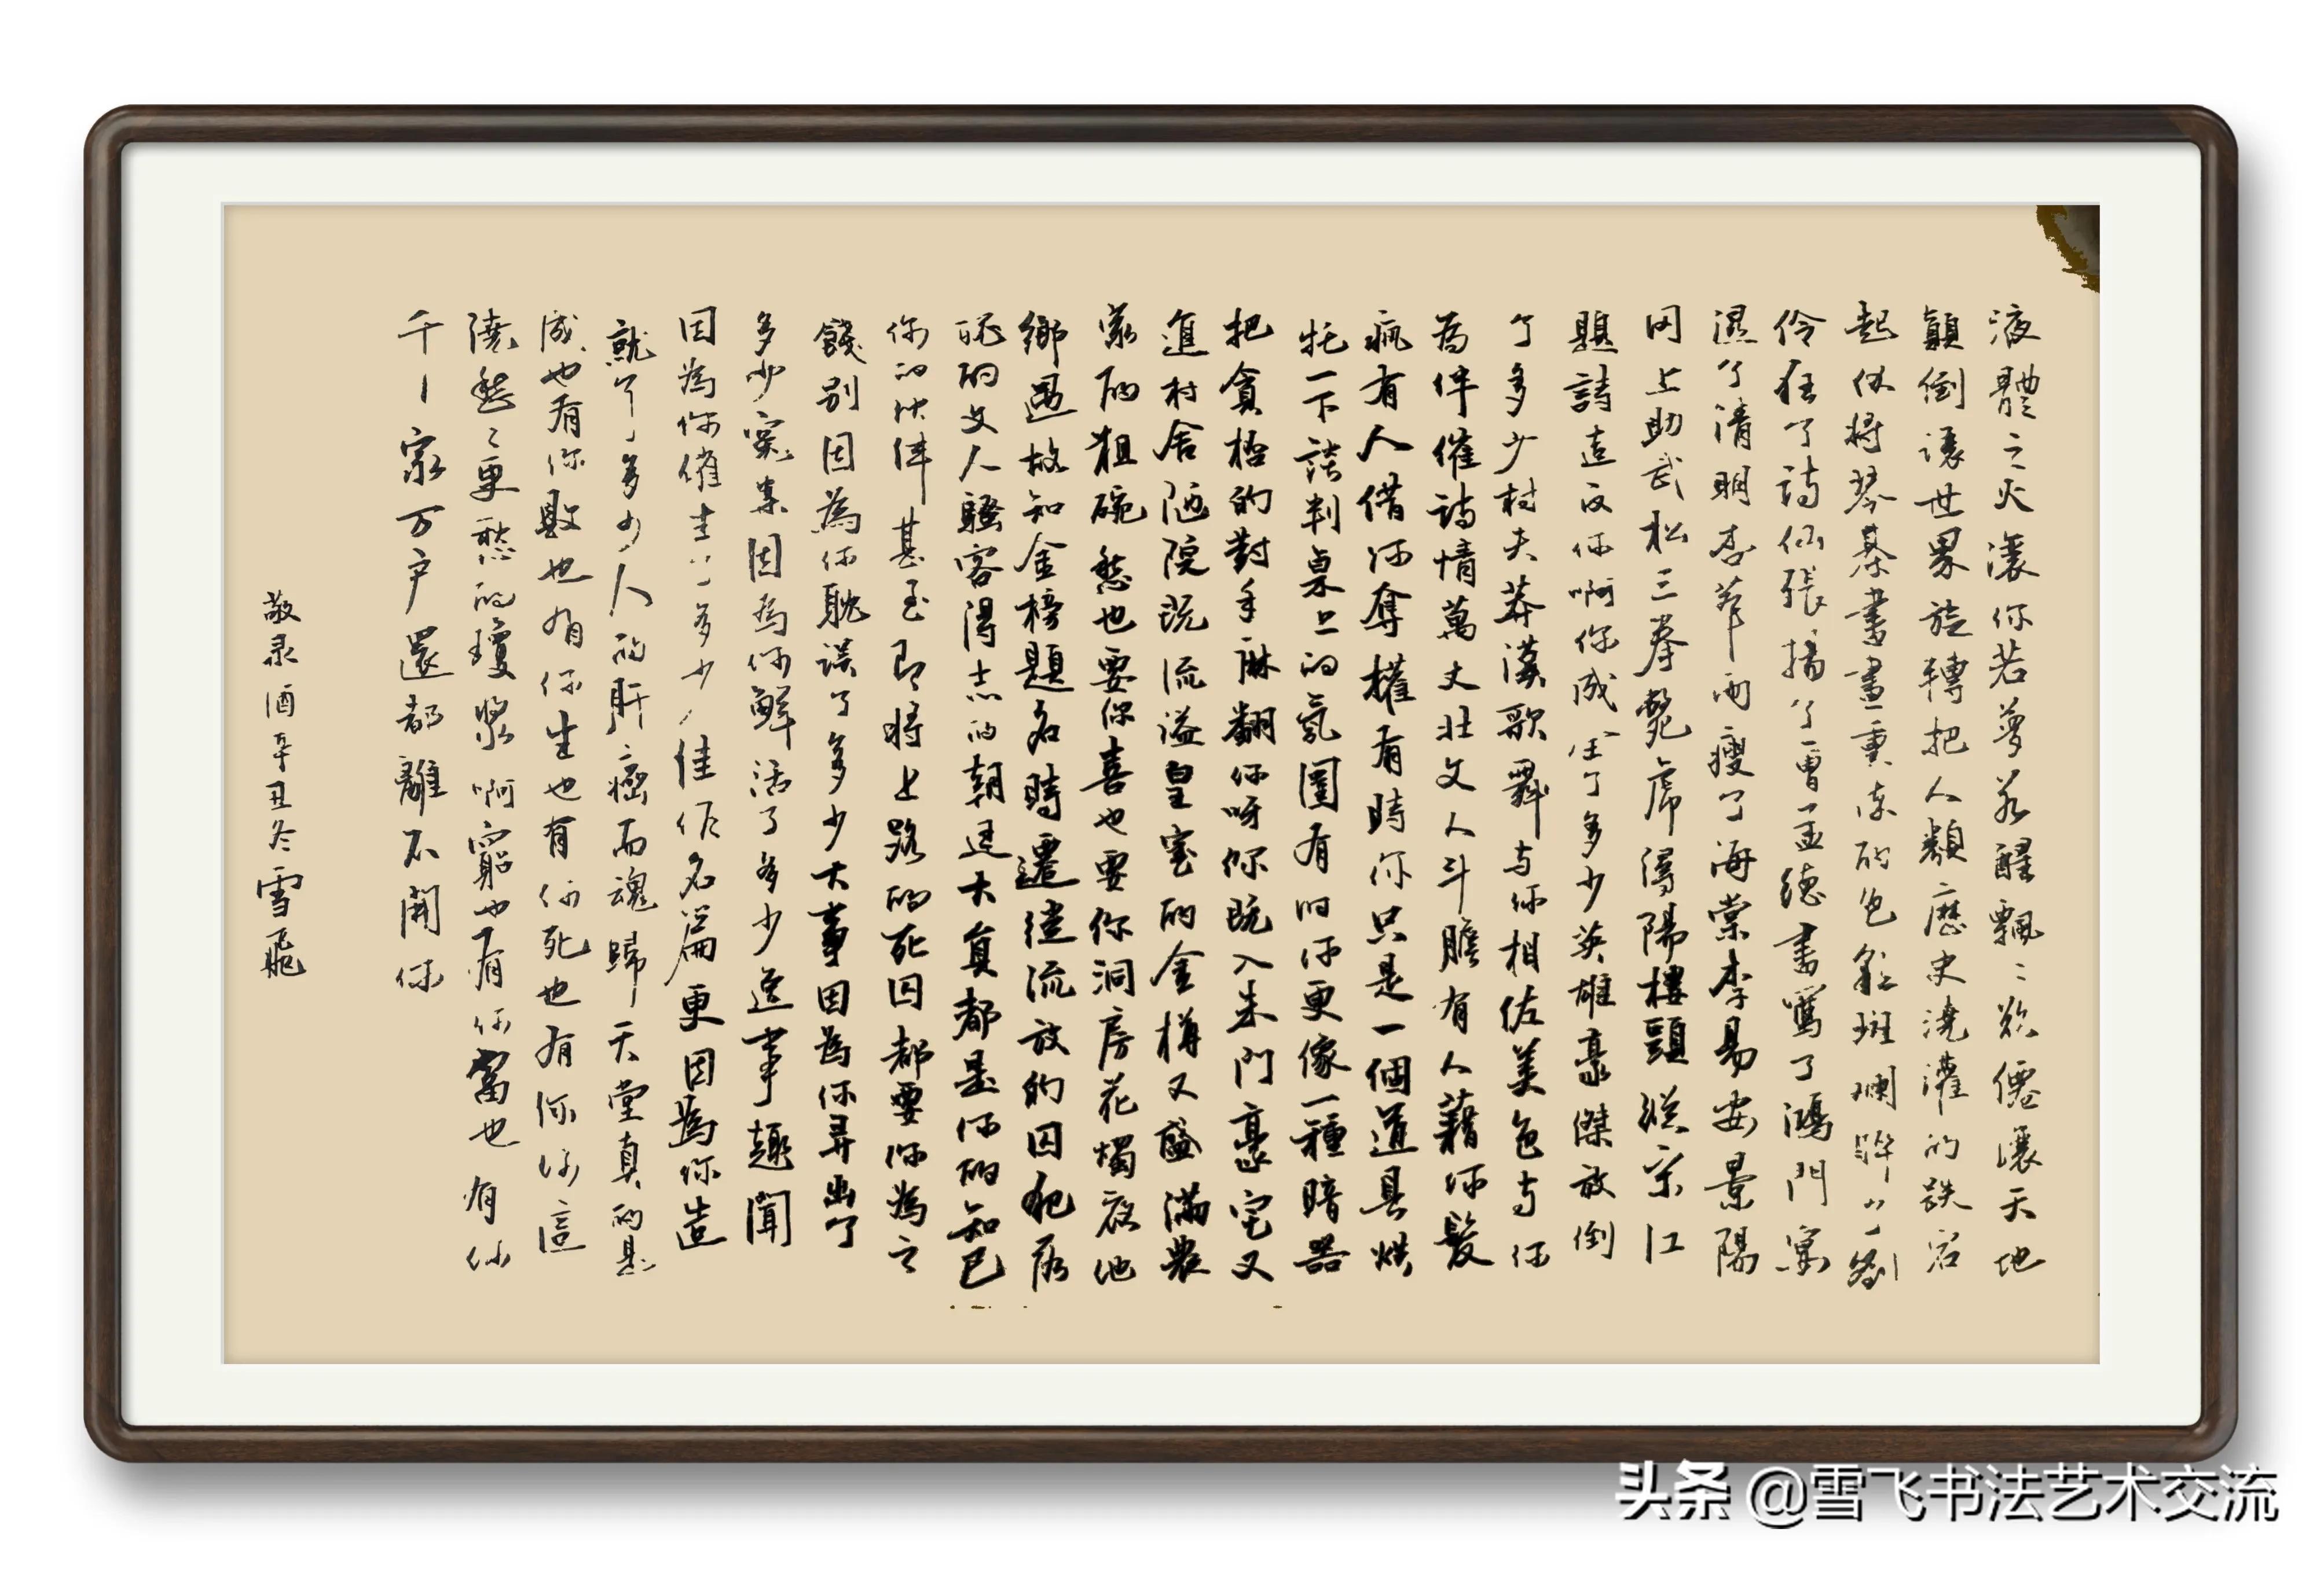 液體之火讓你若夢若醒飄飄欲僊讓天地
顛倒讓世界旋轉把人類歷史澆灌的跌宕
起伏將琴棊書畫熏染的色彩斑斕醉劉
伶狂了詩仙張揚了曹孟德書罵了鴻門宴
濕了清明杏花雨瘦了海棠李易安景陽
冈上助武松三拳斃虎潯陽樓頭縱宋江
題詩造反你啊你成全了多少英雄豪傑放倒
了多少村夫莽漢歌舞与你相佐美色与你
為伴催詩情萬丈壯文人斗膽有人藉你發
瘋有人借你奪權有時你只是一個道具烘
托一下談判桌上的氛圍有时你更像一種暗器
把貪杯的對手麻翻你呀你既入朱門豪宅又
進村舍陋院既流溢皇室的金樽又盛滿農
家的粗碗愁也要你喜也要你洞房花燭夜他
鄉遇故知金榜題名時遷徙流放的囚犯落
魄的文人騷客得志的朝廷大員都是你的知已
你的伙伴甚至即將上路的死囚都要你為之
餞别因為你耽误了多少大事因為你弄出了
多少冤案因為你鮮活了多少逸事趣聞
因為你催生了多少佳作名篇更因為你造
就了多少人的肝癌而魂歸天堂真的是
成也有你敗也有你生也有你死也有你你這
澆愁愁更愁的瓊漿啊窮也有你富也有你
千家万户還都離不開你
敬录酒辛丑冬雪飛
头条 @雪飞书法艺术交流